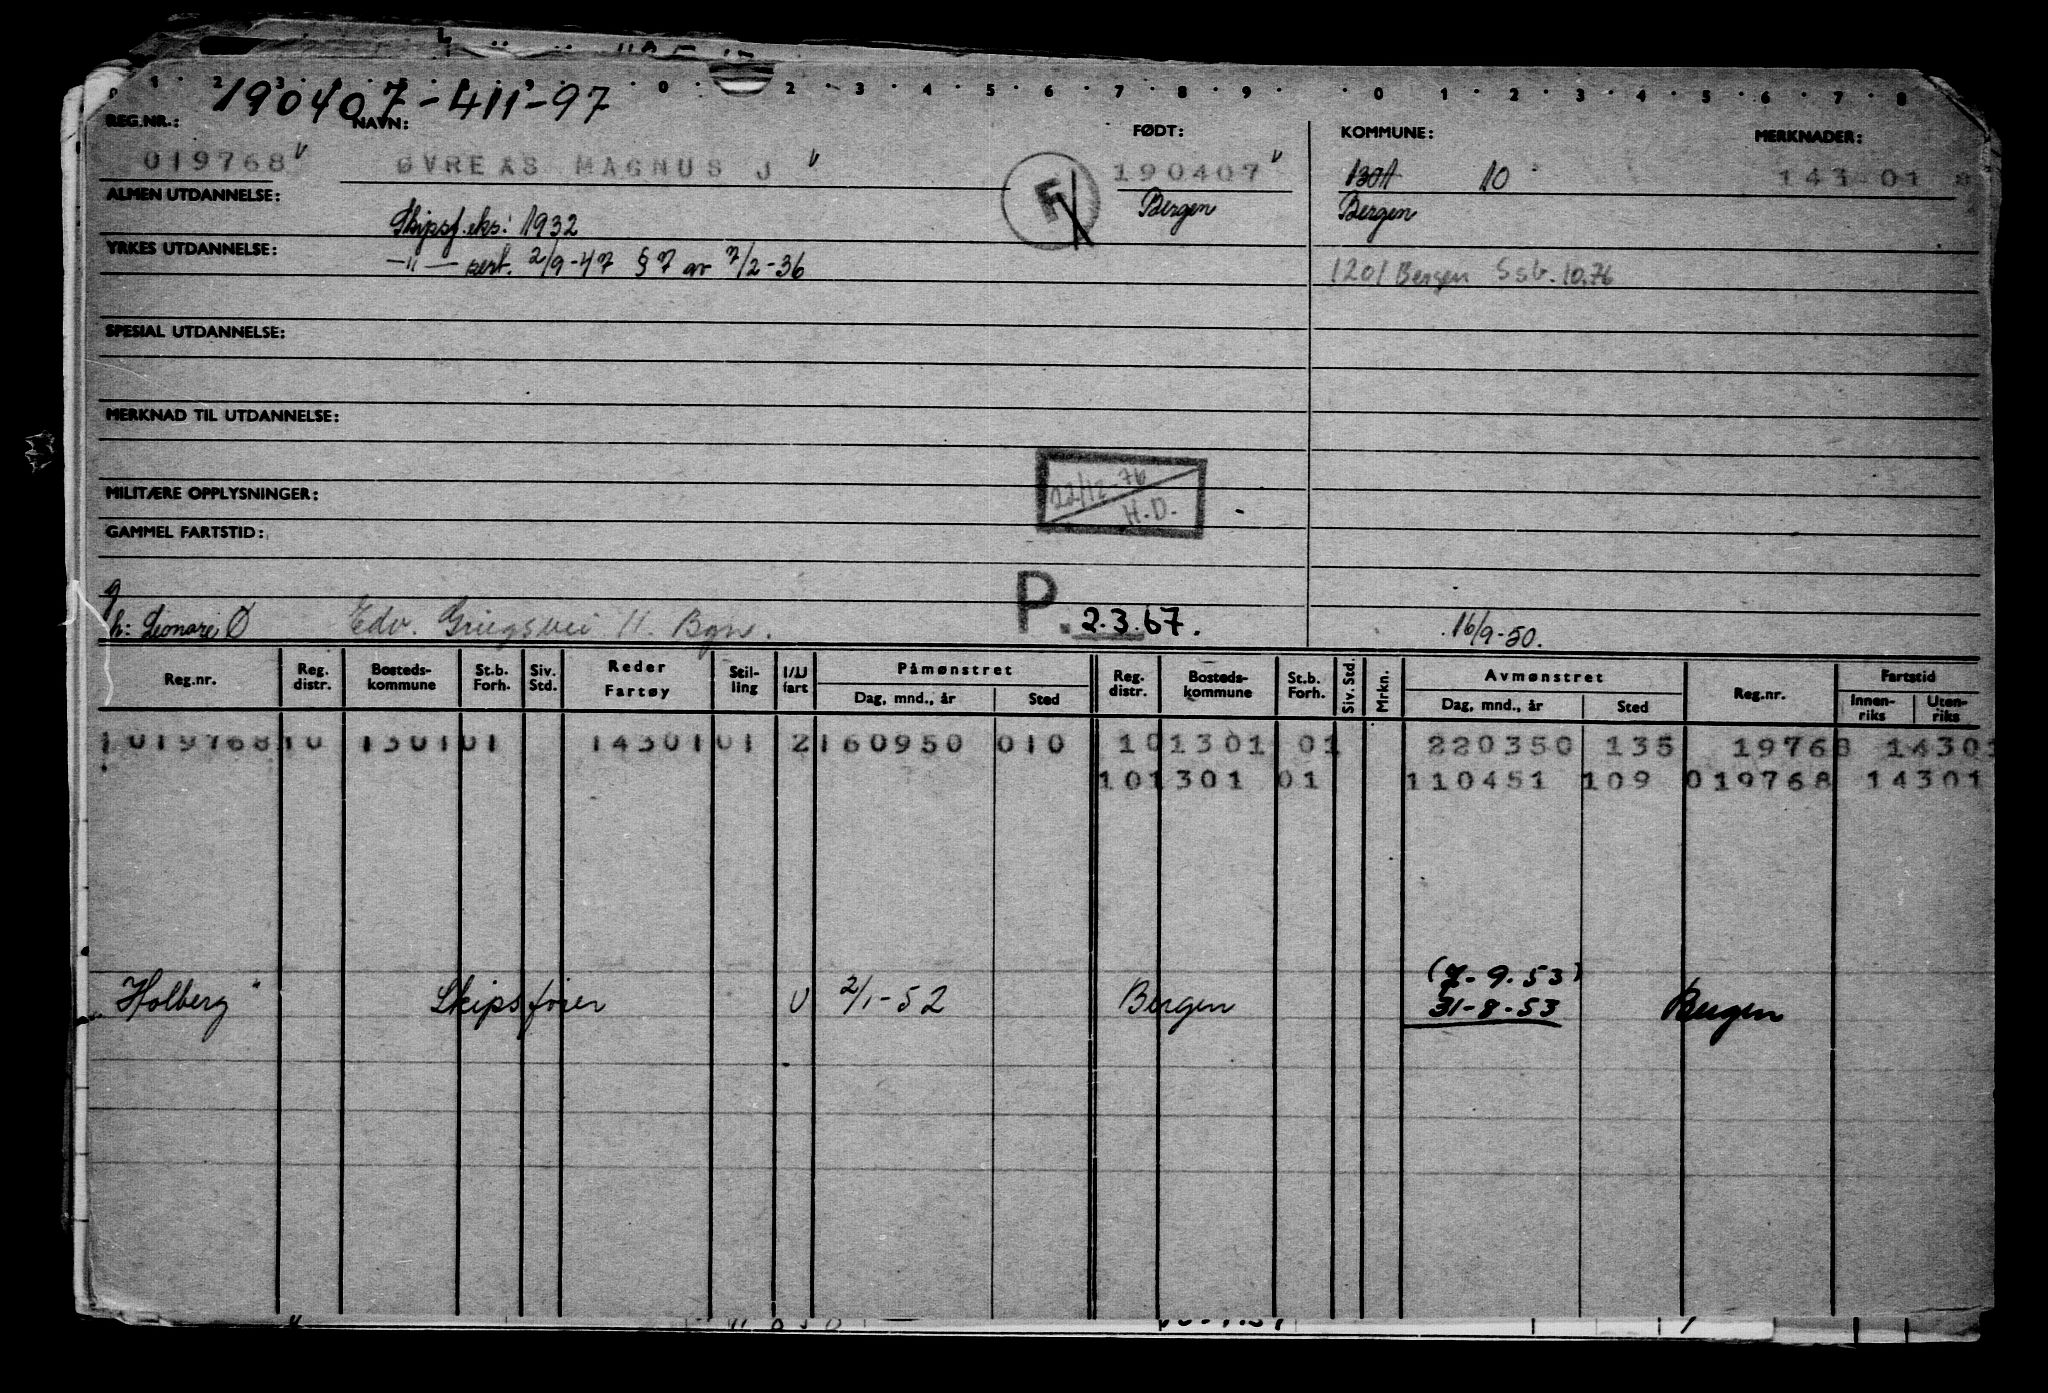 1 2 3 0 2 3 4 5 6 7 8 9 0 1 2 3 4 5 6 7 8
190407-411-97
REG.NR.: NAVN: FØDT: KOMMUNE: MERKNADER:
019768 ØVREAS MAGNUS J F 190407 1301 10 143 01 8
ALMEN UTDANNELSE: Skipsf.eks: 1932 Bergen Bergen
YRKES UTDANNELSE: -"- sert. 2/9-47 § 7 av 7/2-36
1201 Bergen Ssb. 10.76
SPESIAL UTDANNELSE:
MERKNAD TIL UTDANNELSE:
22/12-76
MILITÆRE OPPLYSNINGER: H.D.
GAMMEL FARTSTID:
g
h: Leonare Ø Edv. Griegsvei 11. Bgn. P. 2.3.67. 16/9-50.
Reg.nr. Reg. distr. Bosteds-kommune St.b. Forh. Siv. Std. Reder Fartøy Stil-ling I/U fart Påmønstret Reg. distr. Bosteds-kommune St.b. Forh. Siv. Std. Mrkn. Avmønstret Reg.nr. Fartstid
Dag, mnd., år Sted Dag, mnd., år Sted Innen-riks Uten-riks
1 019768 10 1301 01 14301 01 2 160950 010 10 1301 01 220350 135 19768 14301
10 1301 01 110451 109 019768 14301
(7-9.53)
Holberg" Skipsfører U 2/1-52 Bergen 31-8-53 Bergen